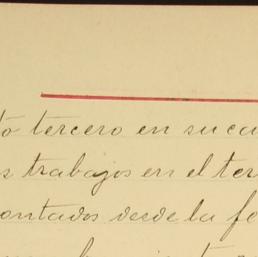 to tercero en su ca
s trabajos en el ter
ontados desde la fe